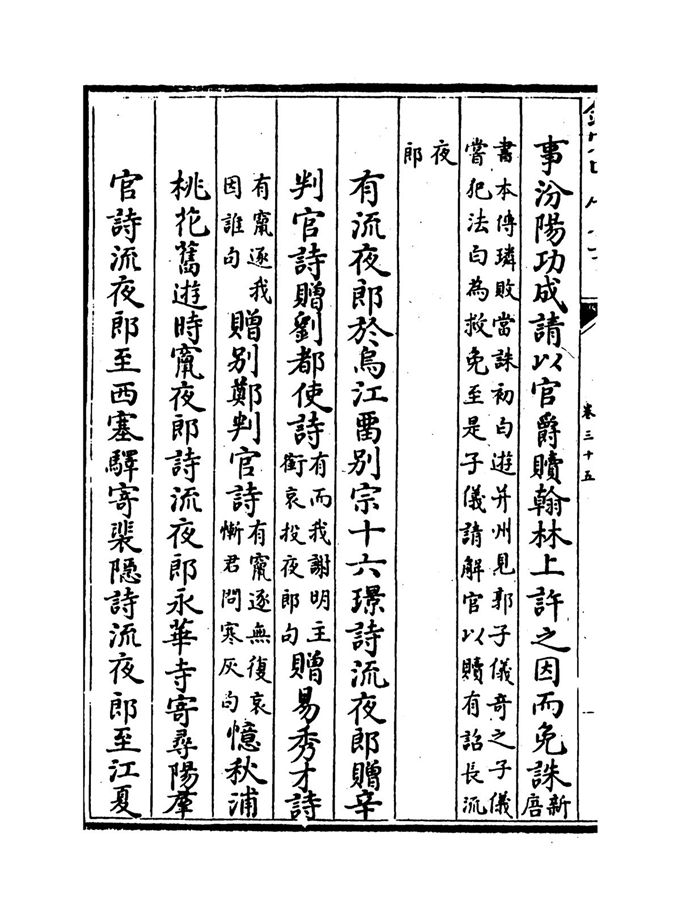 卷三十五
事汾陽功成請以官爵贖翰林上許之因而免誅新唐
書本傳璘敗當誅初白遊并州見郭子儀奇之子儀
嘗犯法白為救免至是子儀請解官以贖有詔長流
夜
郎
有流夜郎於烏江畱别宗十六璟詩流夜郎贈辛
判官詩贈劉都使詩有而我謝明主銜哀投夜郎句贈易秀才詩
有竄逐我因誰句贈别鄭判官詩有竄逐無復哀慚君問寒灰句憶秋浦
桃花舊遊時竄夜郎詩流夜郎永華寺寄尋陽羣
官詩流夜郎至西塞驛寄裴隱詩流夜郎至江夏